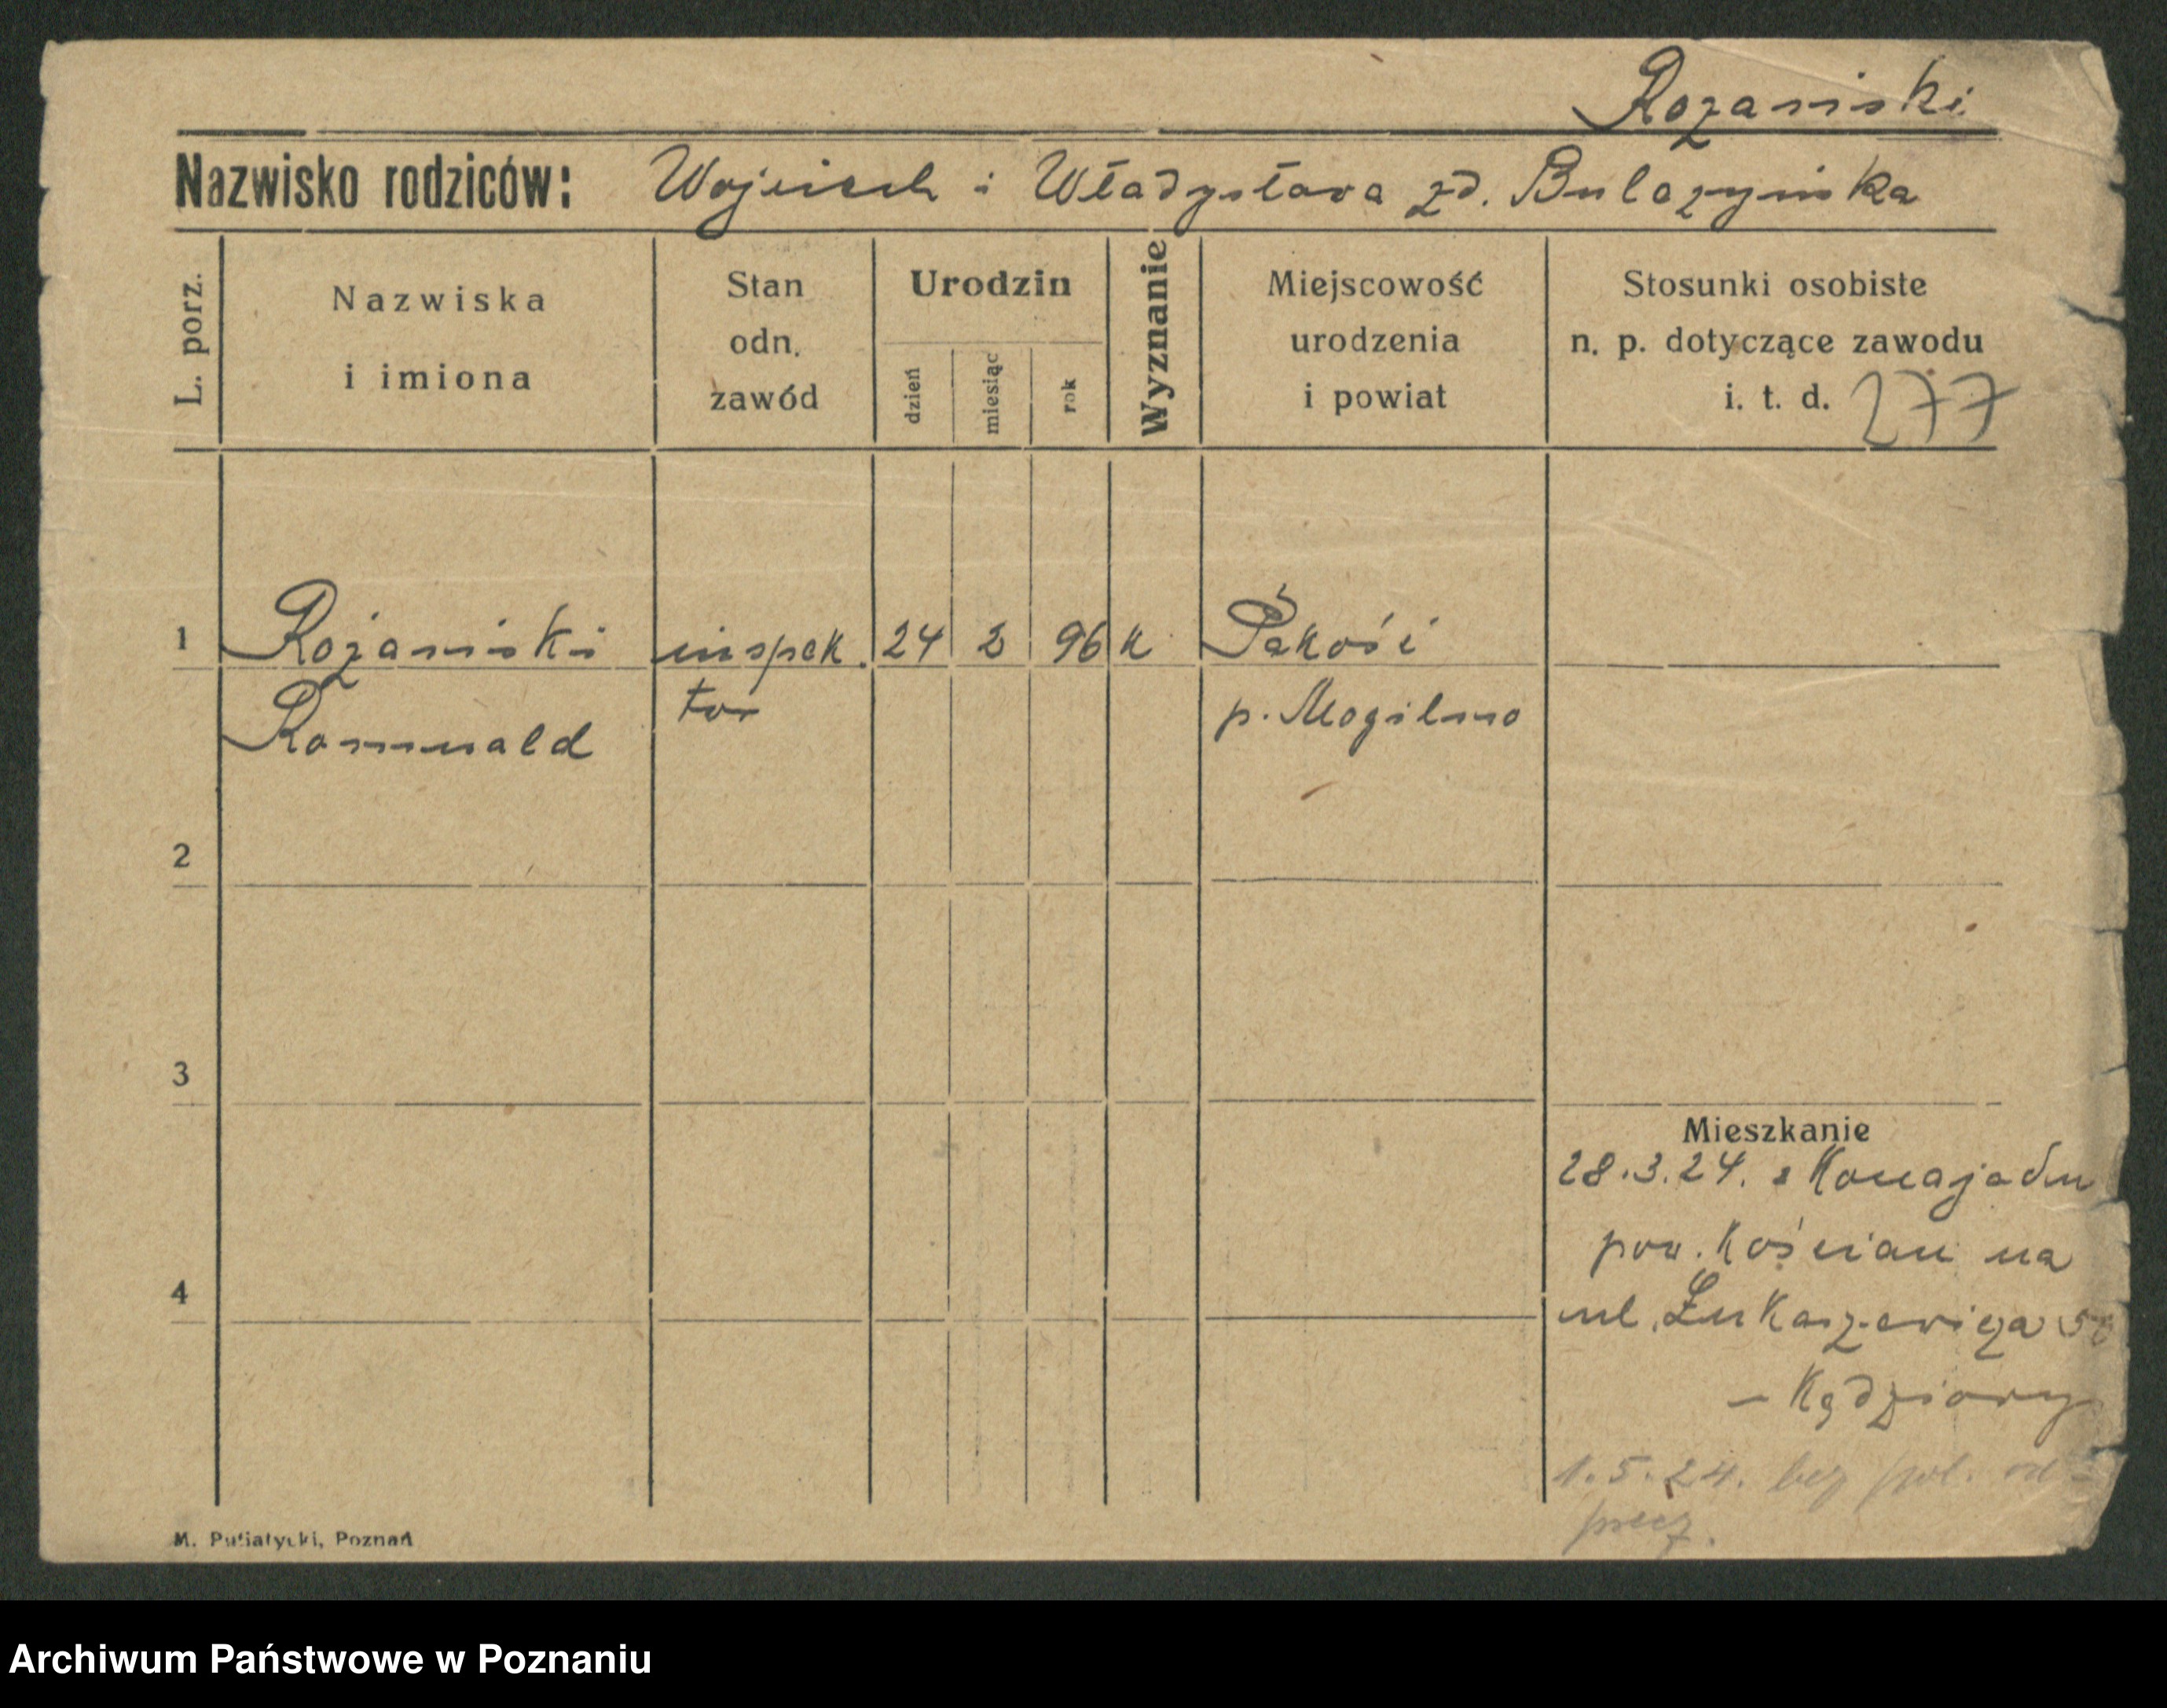 Rozaniski
Nazwisko rodziców: Wojciech i Władysława zd. Bulczyńska
L. porz.
Nazwiska
i imiona
Stan
odn.
zawód
Urodzin
dzień
miesiąc
rok
Wyznanie
Miejscowość
urodzenia
i powiat
Stosunki osobiste
n. p. dotyczące zawodu
i. t. d. 277
1 Rożaniski inspek. 24 2 96 K Pakość
Romuald tor p. Mogilno
2
3
Mieszkanie
28.3.24. z Konojadu
pow. Kościan na
4
ul. Łukaszewicza
– Kędziory
1.5.24. bez pol. od-
M. Putiatycki, Poznań
Archiwum Państwowe w Poznaniu